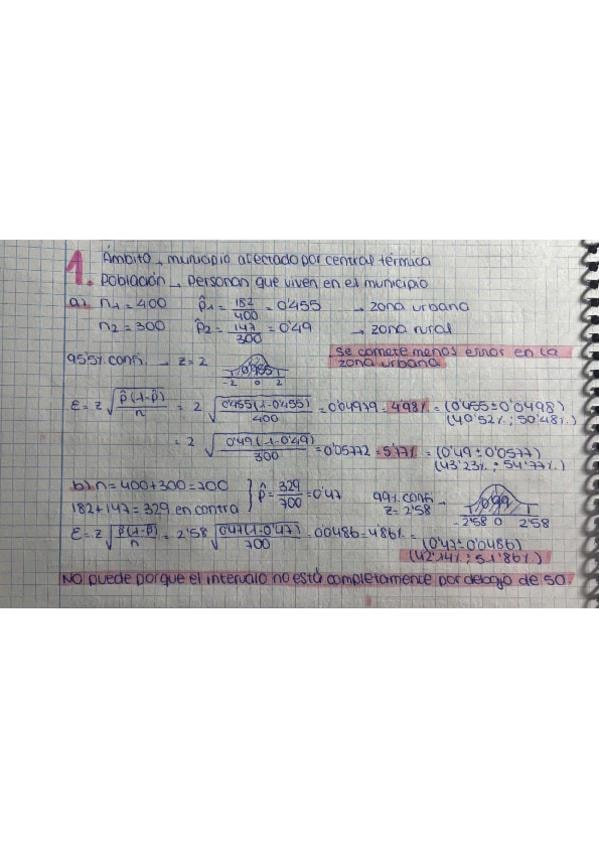 1. Ámbito → municipio afectado por central térmica
Población → Personas que viven en el municipio
a) n1 = 400 p̂1 = 182/400 = 0'455 → zona urbana
n2 = 300 p̂2 = 147/300 = 0'49 → zona rural
se comete menos error en la
zona urbana
95'5% conf. → z = 2 0'955
-2 0 2
ε = z √(p̂(1-p̂)/n) = 2 √(0'455(1-0'455)/400) = 0'04979 = 4'98% = (0'455 ± 0'0498)
(40'52% ; 50'48%)
= 2 √(0'49(1-0'49)/300) = 0'05772 = 5'77% = (0'49 ± 0'0577)
(43'23% ; 54'77%)
b) n = 400+300 = 700
182+147 = 329 en contra } p̂ = 329/700 = 0'47 99% conf z = 2'58 0'99
-2'58 0 2'58
ε = z √(p̂(1-p̂)/n) = 2'58 √(0'47(1-0'47)/700) = 0'0486 = 4'86% = (0'47 ± 0'0486)
(42'14% ; 51'86%)
No puede porque el intervalo no está completamente por debajo de 50.